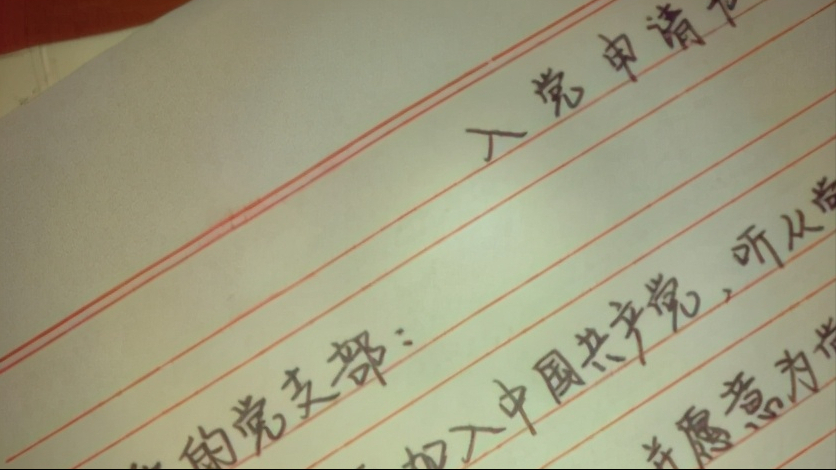 入党申请
的党支部：
加入中国共产党，听从党
并愿意为党